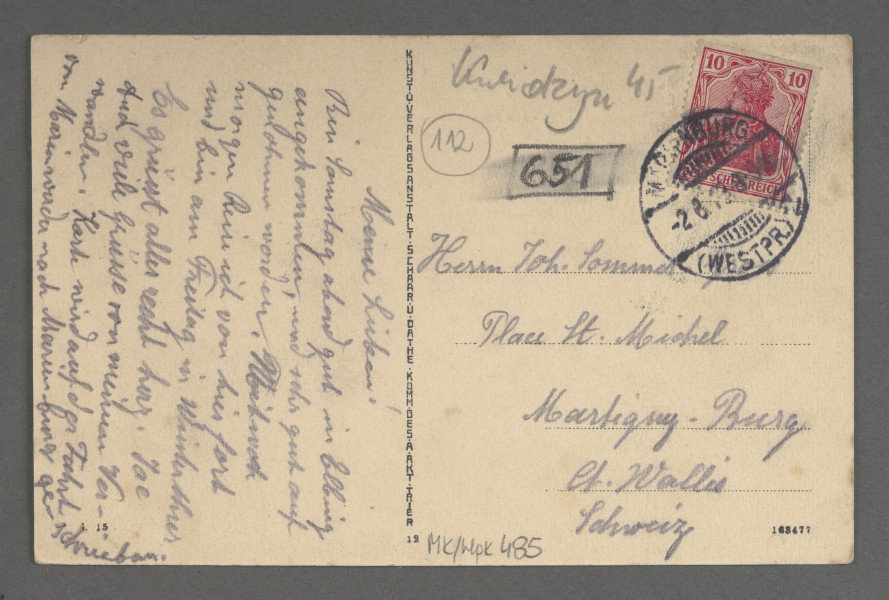 Meine Lieben!
Bin Samstag abend gut in Elbing
angekommen, und sehr gut auf
genommen worden. Mitwoch
morgen Reise ich von hier fort
und bin am Freitag in Winterthur
Es grüsst alle recht herz.
Und viele Grüsse von meinen Ver-
wandten. Karte wird auf der Fahrt
von Marienwerder nach Marienburg ge-
schrieben.
4. 15
KUNST U. VERLAGSANSTALT · SCHAAR U. DATHE · KOMM. GES. A. AKT. TRIER
19
Kwidzyn 45
112
651
10 10
MARIENBURG
-2.8.
(WESTPR.)
Herrn Joh. Sommer
Place St. Michel
Martigny-Burg
Ct. Wallis
Schweiz
163477
MK/Wpk 485